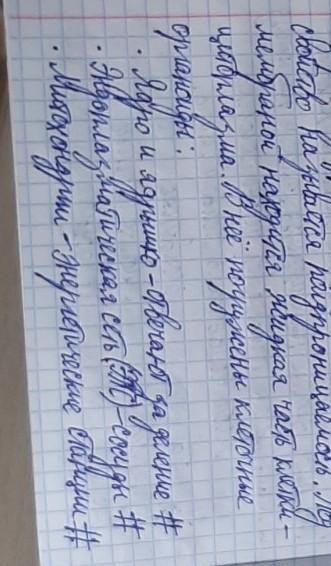 свойство называется полупроницаемость. Под
мембраной находится жидкая часть клетки -
цитоплазма. В неё погружены клеточные
органоиды:
· Ядро и ядрышко - отвечают за деление #
· Эндоплазматическая сеть (ЭПС) - сосуды #
· Митохондрии - энергетические станции #